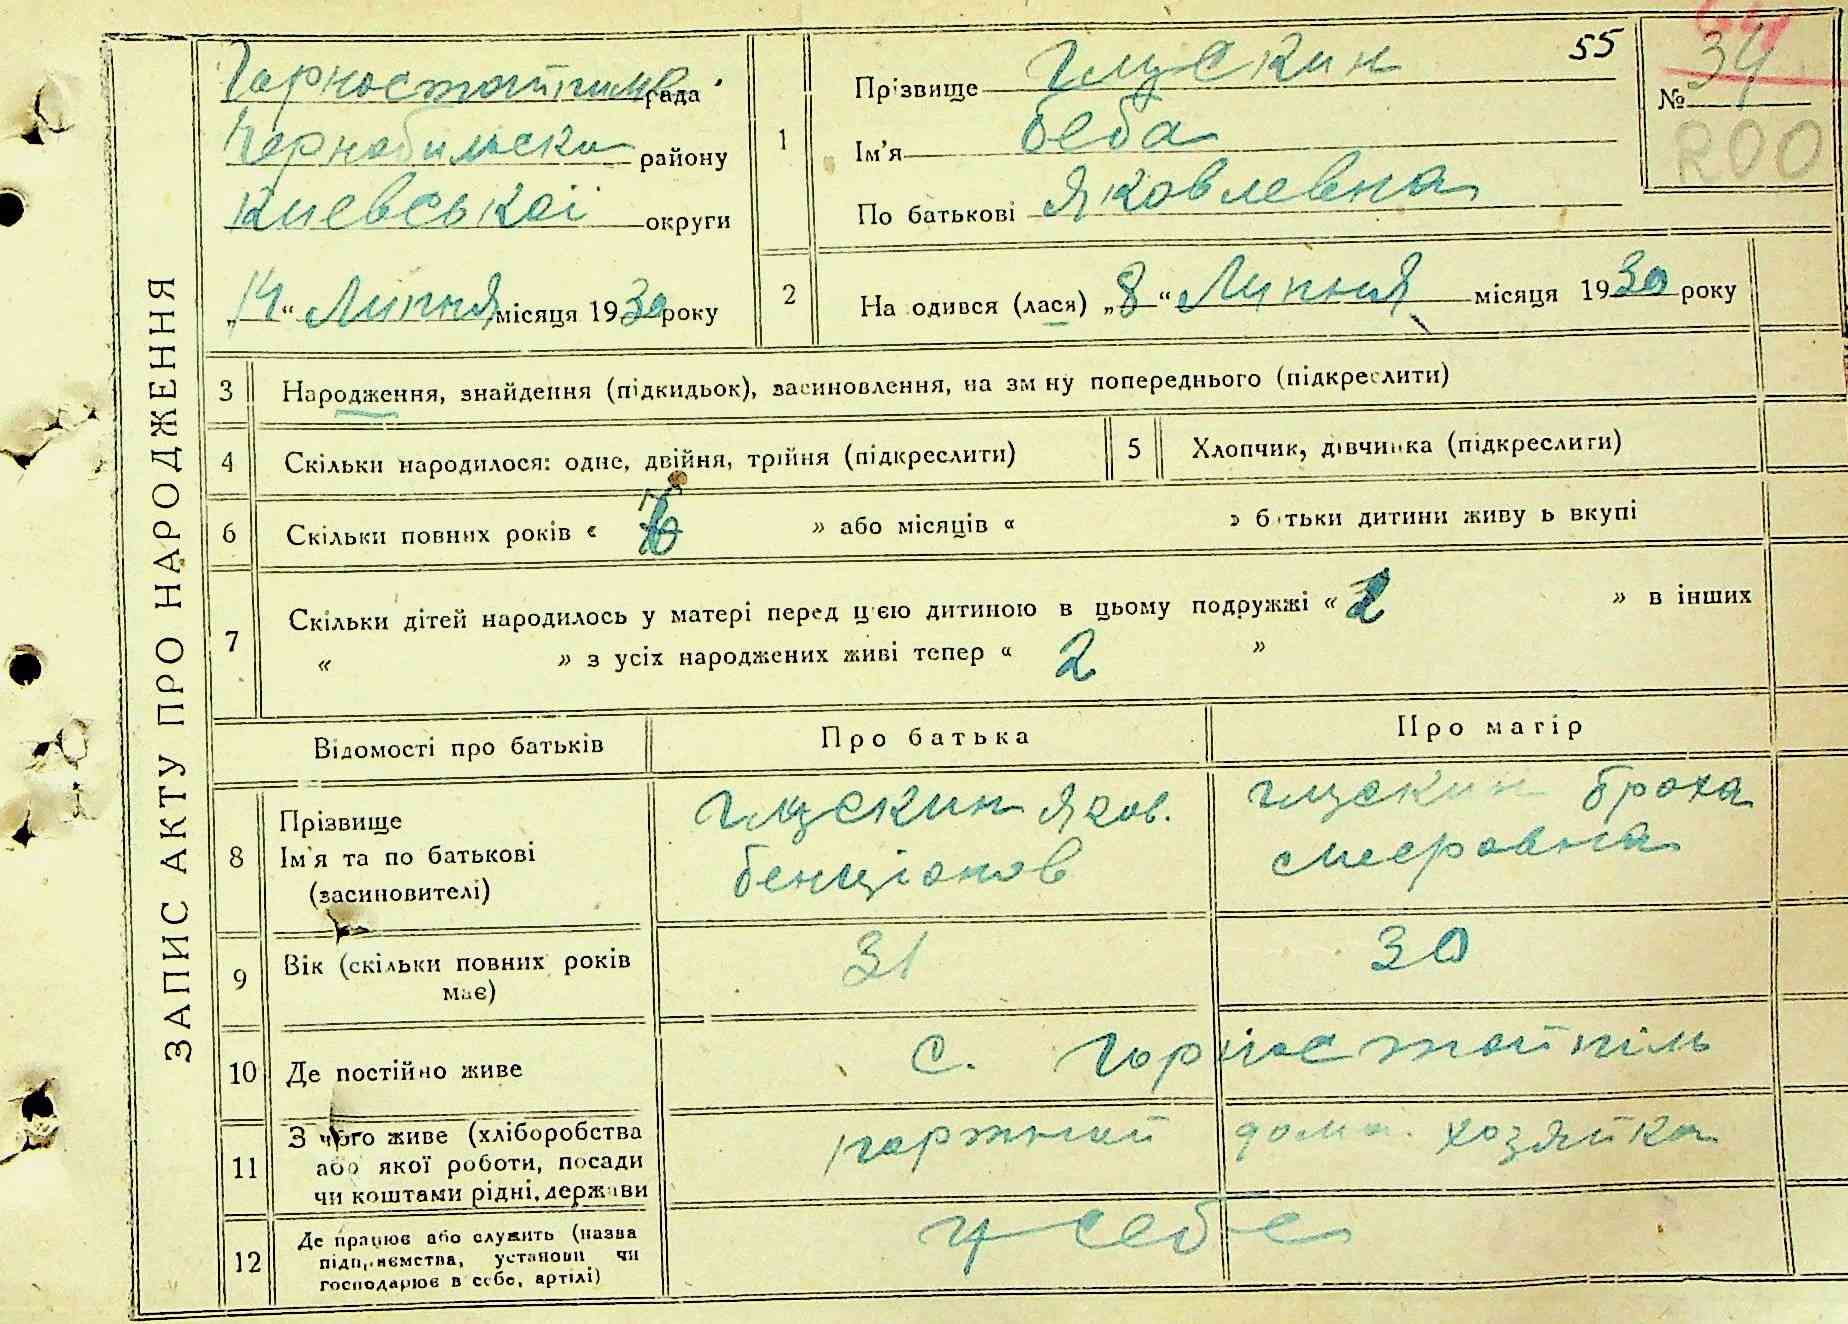 ЗАПИС АКТУ ПРО НАРОДЖЕННЯ
рада
Чернобильски району
Киевськоі округи
„14“ Липня місяця 1930 року
1
Прізвище Глускин
55
Ім'я Беба
По батькові Яковлевна
№ 34
200
2
На одився (лася) „8“ Липня місяця 1930 року
3 Народження, знайдення (підкидьок), засиновлення, на зм ну попереднього (підкреслити)
4 Скільки народилося: одне, двійня, трійня (підкреслити)
5 Хлопчик, дівчинка (підкреслити)
6 Скільки повних років « » або місяців « » б тьки дитини живу ь вкупі
7 Скільки дітей народилось у матері перед цією дитиною в цьому подружжі « 2 » в інших
« » з усіх народжених живі тепер « 2 »
Відомості про батьків
Про батька
Про матір
8
Прізвище
Ім'я та по батькові
(засиновителі)
Глускин Яков.
Бенціонов
Глускин Броха
Мееровна
9
Вік (скільки повних років
має)
31
30
10 Де постійно живе
с. Горностайпіль
11
З чого живе (хліборобства
або якої роботи, посади
чи коштами рідні, держави
дома. хозяйка
12
Де працює або служить (назва
підприємства, установи чи
господарює в себе, артілі)
у себе